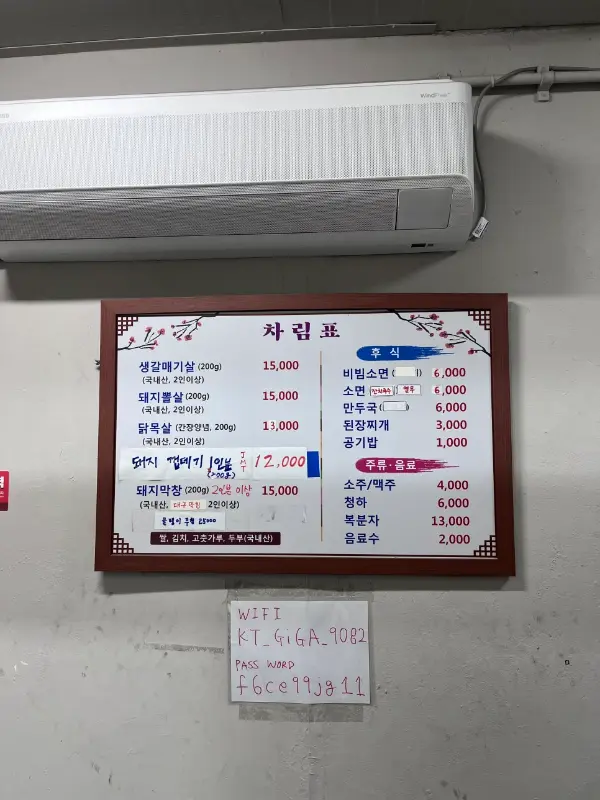 WindFree
차림표
생갈매기살 (200g) 15,000
(국내산, 2인이상)
돼지뽈살 (200g) 15,000
(국내산, 2인이상)
닭목살 (간장양념, 200g) 13,000
(국내산, 2인이상)
돼지 껍데기 1인분 JMT 12,000
(200g)
돼지막창 (200g) 2인분 이상 15,000
(국내산, 2인이상)
쌀, 김치, 고춧가루, 두부(국내산)
후식
비빔소면 ( ) 6,000
소면 6,000
만두국 ( ) 6,000
된장찌개 3,000
공기밥 1,000
주류·음료
소주/맥주 4,000
청하 6,000
복분자 13,000
음료수 2,000
WIFI
KT_GiGA_9082
PASS WORD
f6ce99jg11